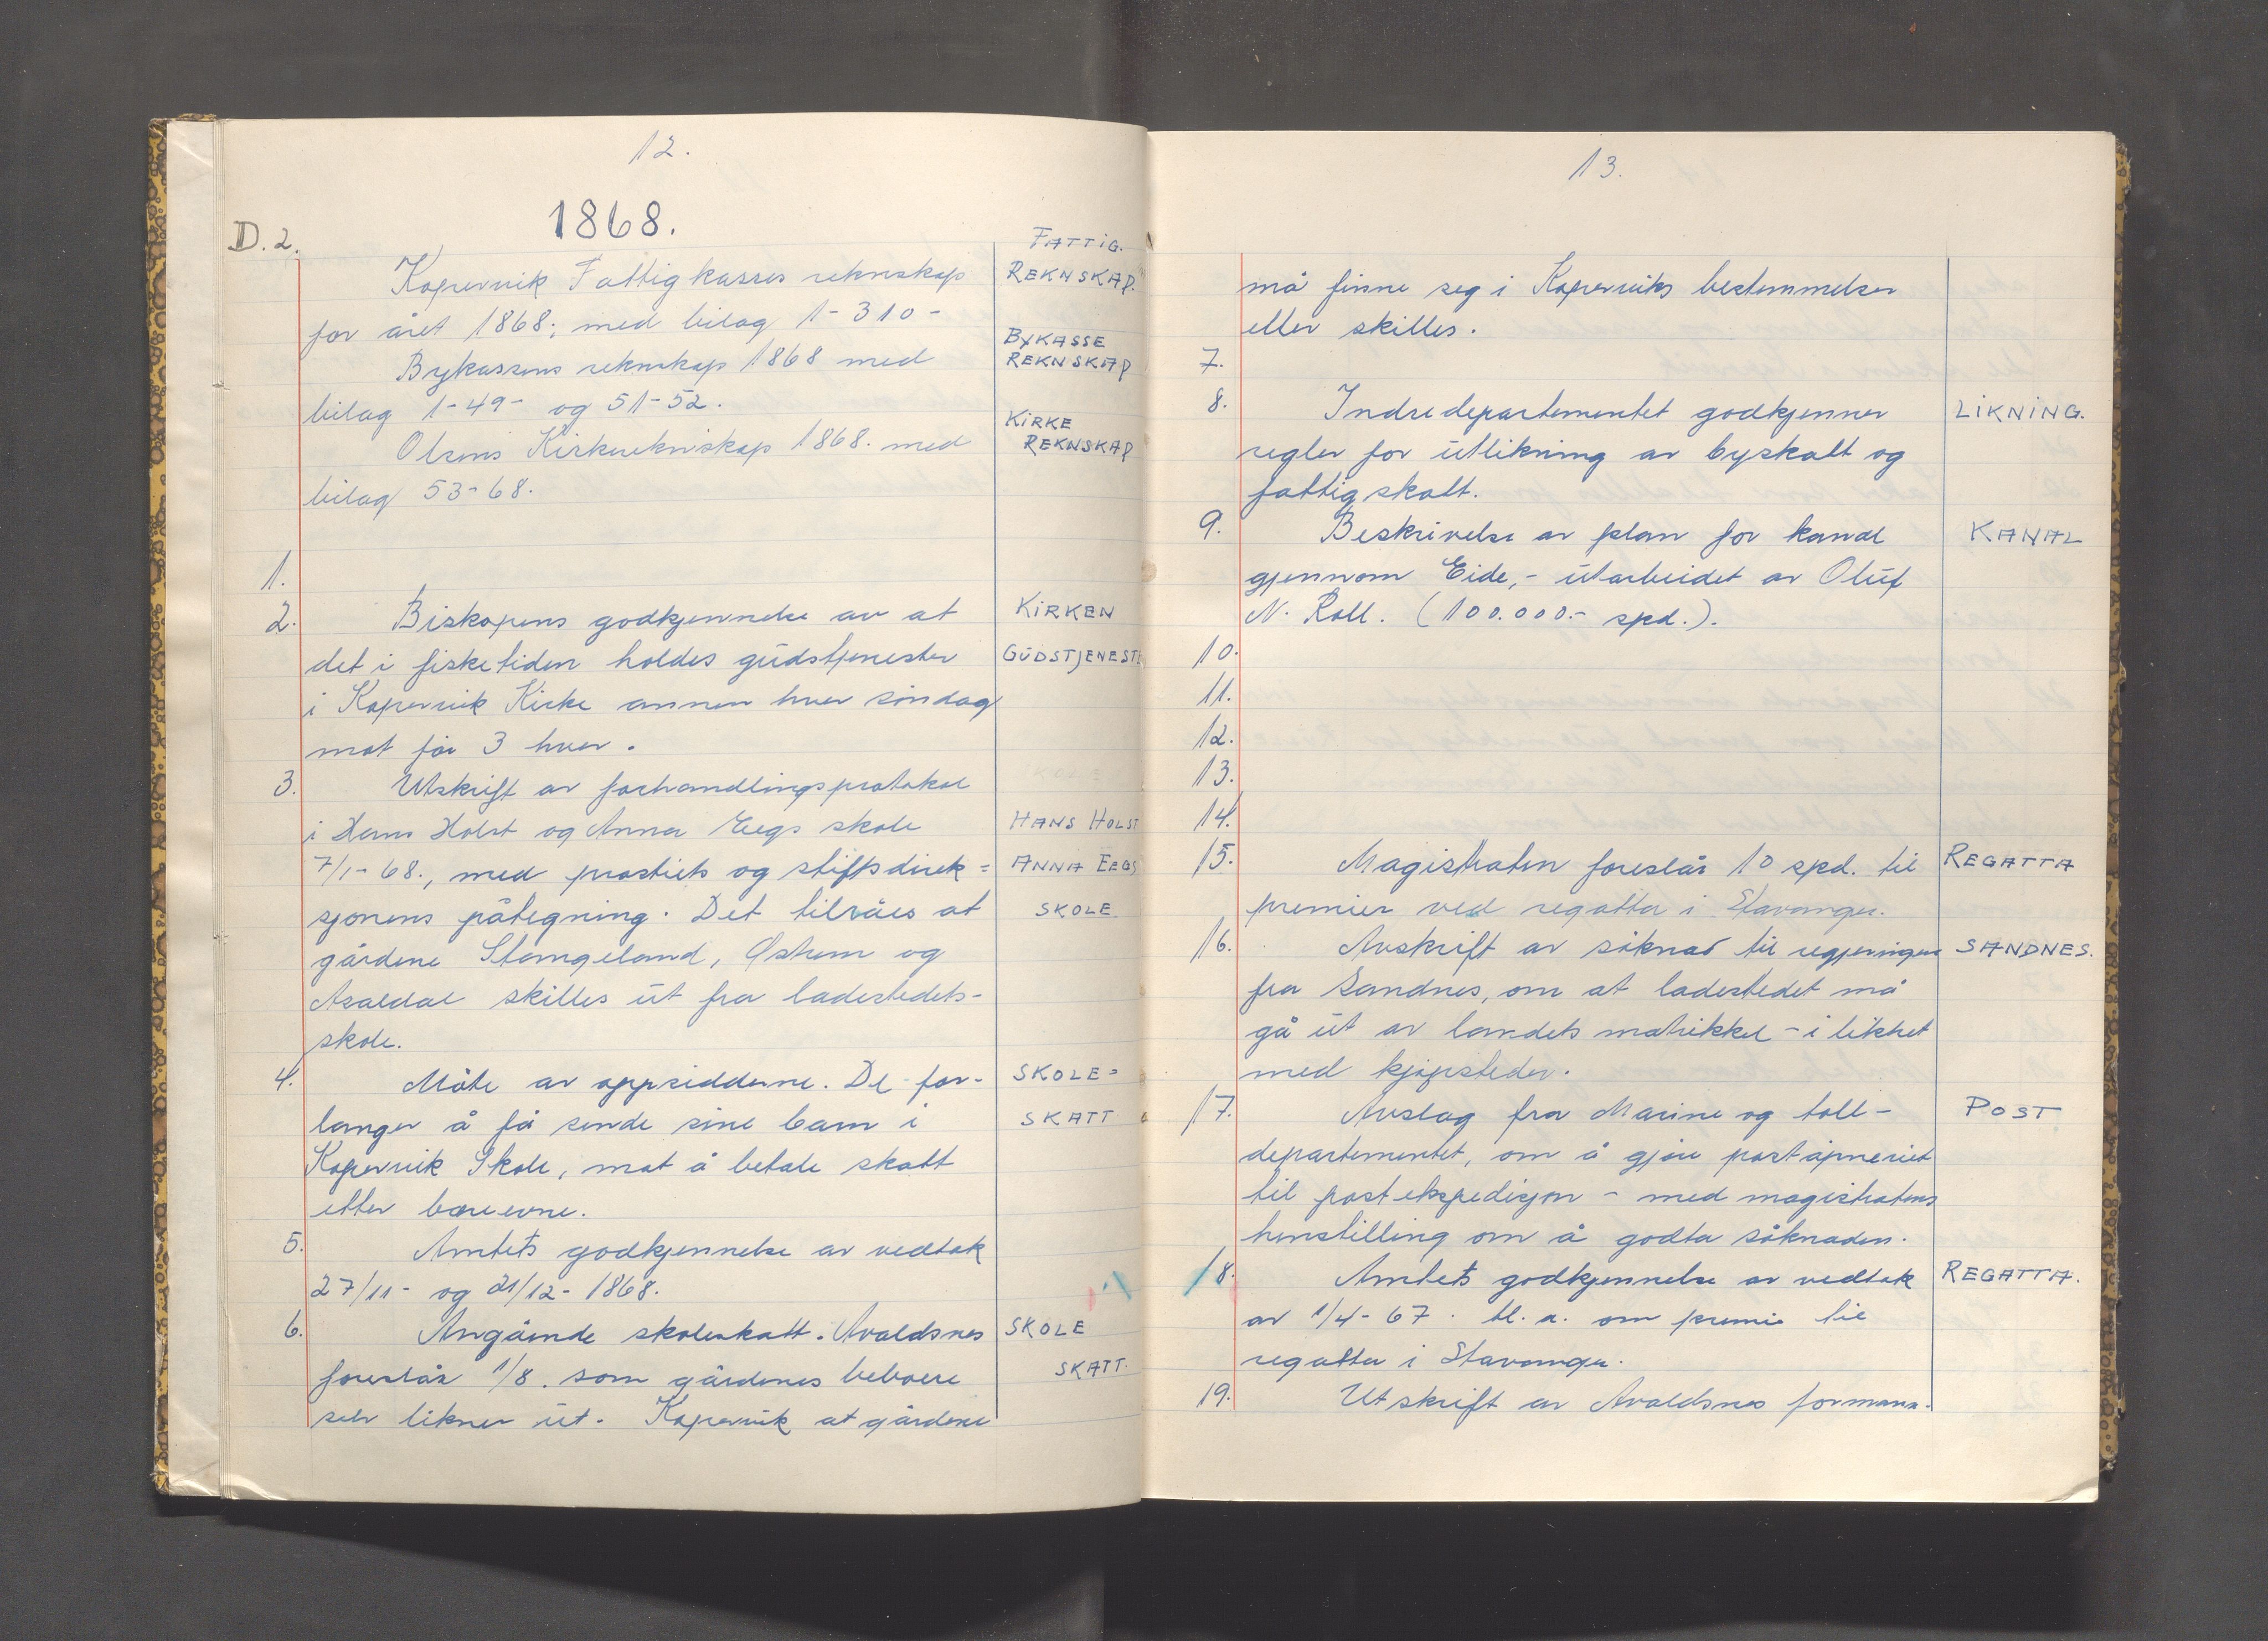 12.
1868.
D. 2.
Kopervik Fattigkasses reknskap
FATTIG.
REKNSKAP.
for året 1868; med bilag 1-310-
Bykassens reknskap 1868 med
BYKASSE
REKNSKAP
bilag 1-49- og 51-52.
Olsens Kirkereknskap 1868. med
KIRKE
REKNSKAP
bilag 53-68.
1.
2. Biskopens godkjennelse av at
KIRKEN
det i fisketiden holdes gudstjenester
GUDSTJENESTE
i Kopervik Kirke annen hver søndag
mot før 3 hver.
3. Utskrift av forhandlingsprotokol
i Hans Holst og Anna Eegs skole
HANS HOLST
7/1-68., med prostiets og stiftsdirek=
ANNA EEGS
sjonens påtegning. Det tilråes at
SKOLE
gårdene Stangeland, Østrem og
Åsaldal skilles ut fra ladestedets-
skole.
4. Møte av oppsidderne. De for-
SKOLE=
langer å få sende sine barn i
SKATT
Kopervik Skole, mot å betale skatt
etter bæreevne.
5. Amtets godkjennelse av vedtak
27/11- og 21/12-1868.
6. Angående skoleskatt. Avaldsnes
SKOLE
foreslår 1/8. som gårdenes beboere
SKATT.
selv likner ut. Kopervik at gårdene
13.
må finne seg i Koperviks bestemmelser
eller skilles.
7.
8. Indredepartementet godkjenner
LIKNING.
regler for utlikning av byskatt og
fattigskatt.
9. Beskrivelse av plan for kanal
KANAL
gjennom Eide,- utarbeidet av Oluf
N. Roll. (100.000.- spd.).
10.
11.
12.
13.
14.
15. Magistraten foreslår 10 spd. til
REGATTA
premier ved regatta i Stavanger.
16. Avskrift av søknad til regjeringen
SANDNES.
fra Sandnes, om at ladestedet må
gå ut av landets matrikkel - i likhet
med kjøpsteder.
17. Avslag fra Marine og toll-
POST
departementet, om å gjøre poståpneriet
til postekspedisjon - med magistratens
henstilling om å godta søknaden.
18. Amtets godkjennelse av vedtak
REGATTA.
av 1/4-67. bl. a. om premie til
regatta i Stavanger.
19. Utskrift av Avaldsnes formann-